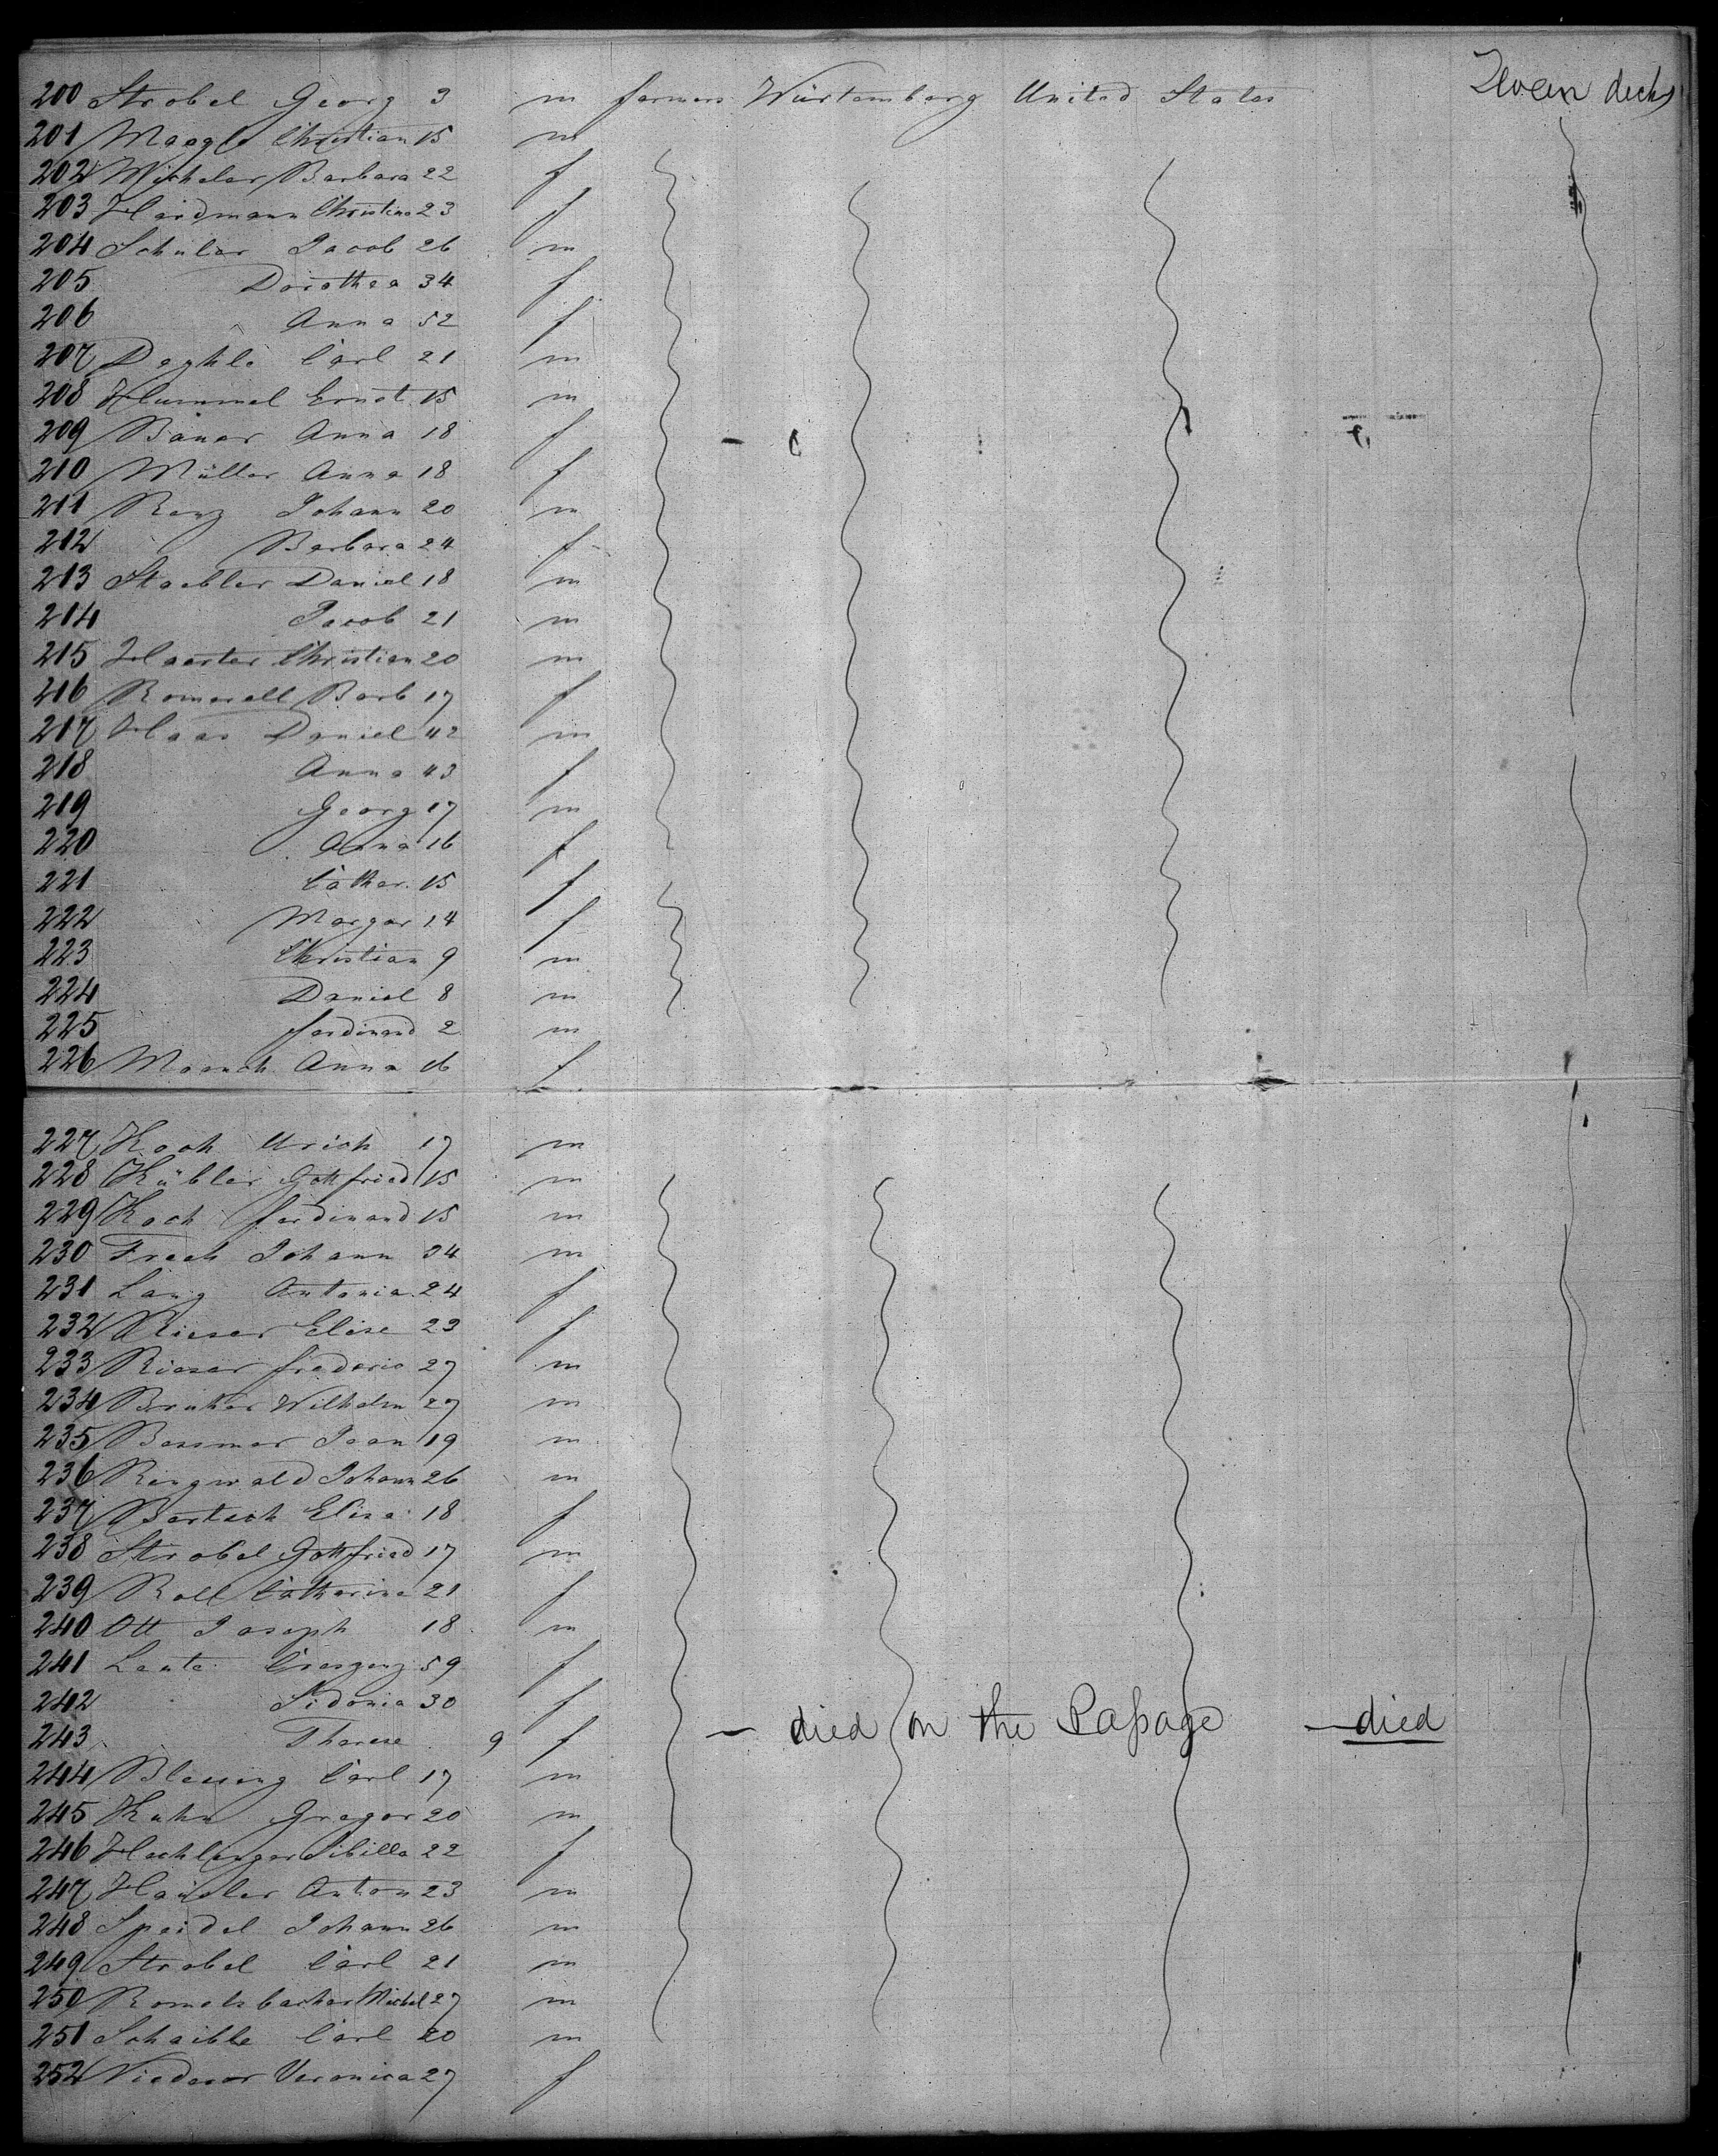 200 Strobel Georg 3 m farmers Würtemberg United States Zween decks
201 Maegle Christian 15 m
202 Michelar Barbara 22 f
203 Hardmann Christina 23 f
204 Schuler Jacob 26 m
205 Dorothea 34 f
206 Anna 52 f
207 Deghle Carl 21 m
208 Hummel Ernst 15 m
209 Bauer Anna 18 f
210 Müller Anna 18 f
211 Renz Johann 20 m
212 Barbara 24 f
213 Staebler Daniel 18 m
214 Jacob 21 m
215 Haerter Christian 20 m
216 Romerell Barb 17 f
217 Haas Daniel 42 m
218 Anna 43 f
219 Georg 17 m
220 Anna 16 f
221 Cather. 15 f
222 Margar 14 f
223 Christian 9 m
224 Daniel 8 m
225 ferdinand 2 m
226 Anna 16 f
227 Koch Urich 17 m
228 Kübler Gottfried 15 m
229 Koch ferdinand 15 m
230 Frech Johann 34 m
231 Lang Antonia 24 f
232 Rieser Elise 23 f
233 Rieser frederic 27 m
234 Bruker Wilhelm 27 m
235 Bessmer Jean 19 m
236 Ringwald Johann 26 m
237 Bartsch Elise 18 f
238 Strobel Gottfried 17 m
239 Roll Catharina 21 f
240 Ott Joseph 18 m
241 Laute Cresgenz 59 f
242 Sidonia 30 f
243 Therese 9 f — died on the Passage — died
244 Blessing Carl 17 m
245 Kuhn Gregor 20 m
246 Hechlinger Sibilla 22 f
247 Häusler Anton 23 m
248 Speidel Johann 26 m
249 Strobel Carl 21 m
250 Romelsbacher Michel 27 m
251 Schaible Carl 20 m
252 Niederer Veronica 27 f